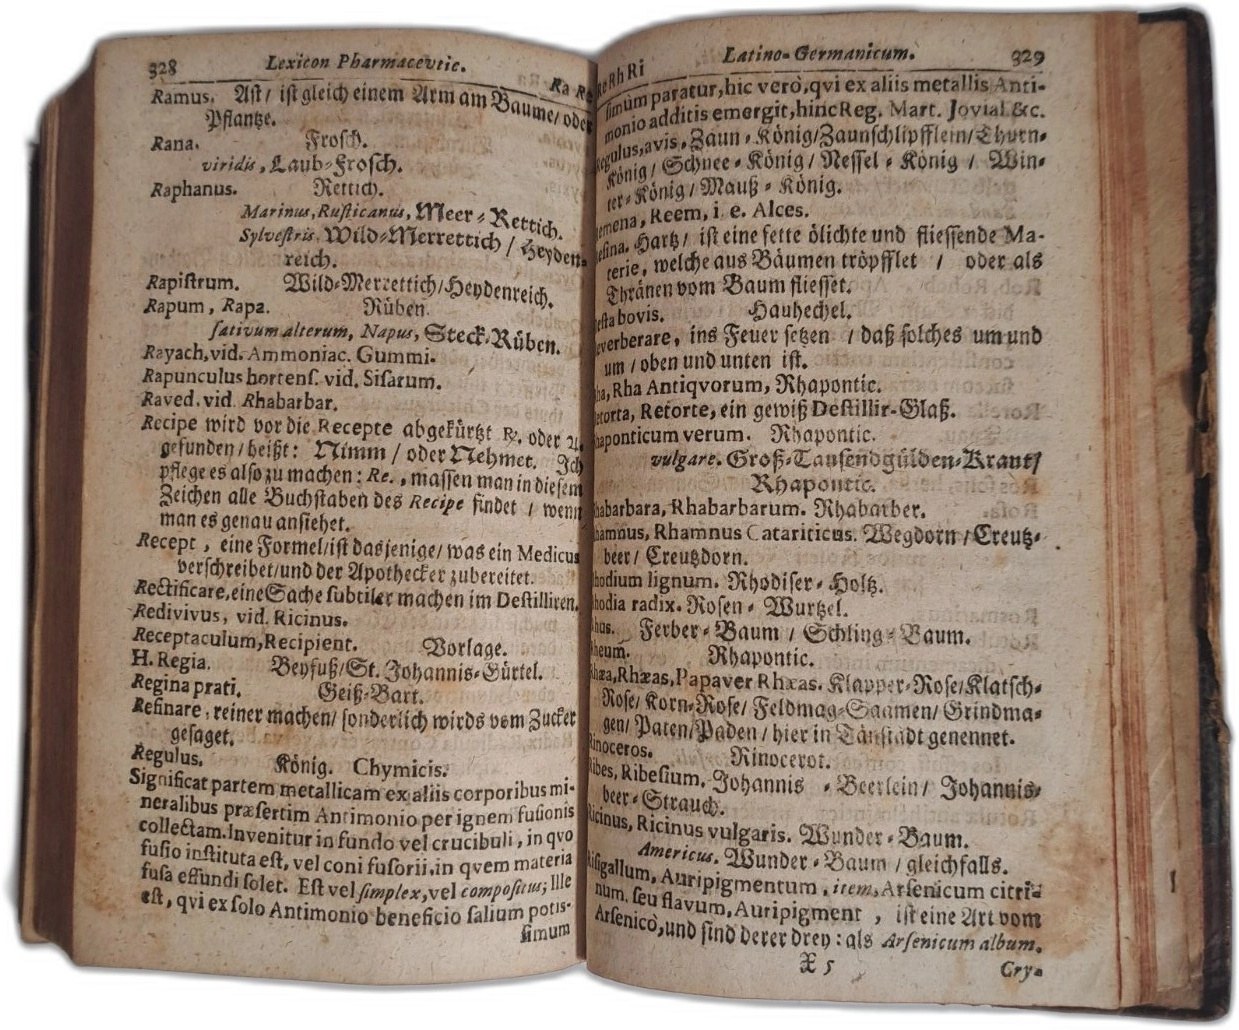 328 Lexicon Pharmacevtic.
Ra-Re
Ramus. Ast/ ist gleich einem Arm am Baume/ oder
Pflantze.
Rana. Frosch.
viridis, Laub-Frosch.
Raphanus. Rettich.
Marinus, Rusticanus, Meer-Rettich.
Sylvestris. Wild-Merrettich / Heyden-
reich.
Rapistrum. Wild-Merrettich/Heydenreich.
Rapum, Rapa. Rüben.
sativum alterum, Napus, Steck-Rüben.
Rayach, vid. Ammoniac. Gummi.
Rapunculus hortens. vid. Sisarum.
Raved. vid. Rhabarbar.
Recipe wird vor die Recepte abgekürtzt ℞. oder
gefunden/ heißt: Nimm / oder Nehmet. Ich
pflege es also zu machen: Re., massen man in diesem
Zeichen alle Buchstaben des Recipe findet / wenn
man es genau ansiehet.
Recept, eine Formel/ist dasjenige/ was ein Medicus
verschreibet/und der Apothecker zubereitet.
Rectificare, eine Sache subtiler machen im Destilliren.
Redivivus, vid. Ricinus.
Receptaculum, Recipient. Vorlage.
H. Regia. Beyfuß/St. Johannis-Gürtel.
Regina prati. Geiß-Bart.
Refinare, reiner machen/ sonderlich wirds vom Zucker
gesaget.
Regulus. König. Chymicis.
Significat partem metallicam ex aliis corporibus mi-
neralibus præsertim Antimonio per ignem fusionis
collectam. Invenitur in fundo vel crucibuli, in qvo
fusio instituta est, vel coni fusorii, in qvem materia
fusa effundi solet. Est vel simplex, vel compositus; Ille
est, qvi ex solo Antimonio beneficio salium potis-
simum
Latino-Germanicum. 329
Re Rh Ri
simum paratur, hic verò, qvi ex aliis metallis Anti-
monio additis emergit, hinc Reg. Mart. Jovial &c.
Regulus, avis, Zaun-König/Zaunschlipfflein/Thurn-
König/ Schnee-König/ Nessel-König / Win-
ter-König/ Mauß-König.
Remena, Reem, i. e. Alces.
Resina. Hartz/ ist eine fette ölichte und fliessende Ma-
terie, welche aus Bäumen tröpfflet / oder als
Thränen vom Baum fliesset.
Resta bovis. Hauhechel.
Reverberare, ins Feuer setzen / daß solches um und
um / oben und unten ist.
Rha, Rha Antiqvorum, Rhapontic.
Retorta, Retorte, ein gewiß Destillir-Glaß.
Rhaponticum verum. Rhapontic.
vulgare. Groß-Tausendgülden-Kraut/
Rhapontic.
Rhabarbara, Rhabarbarum. Rhabarber.
Rhamnus, Rhamnus Catariticus. Wegdorn / Creutz-
beer/ Creutzdorn.
Rhodium lignum. Rhodiser-Holtz.
Rhodia radix. Rosen-Wurtzel.
Rhus. Ferber-Baum / Schling-Baum.
Rheum. Rhapontic.
Rhæa, Rhæas, Papaver Rhæas. Klapper-Rose/Klatsch-
Rose/ Korn-Rose/ Feldmag-Saamen/ Grindma-
gen/ Paten/Paden/ hier in Tänstädt genennet.
Rinoceros. Rinocerot.
Ribes, Ribesium. Johannis-Beerlein/ Johannis-
beer-Strauch.
Ricinus, Ricinus vulgaris. Wunder-Baum.
Americus. Wunder-Baum / gleichfalls.
Risigallum, Auripigmentum, item, Arsenicum citri-
num, seu flavum, Auripigment, ist eine Art vom
Arsenico, und sind derer drey: als Arsenicum album.
X 5 Cry-